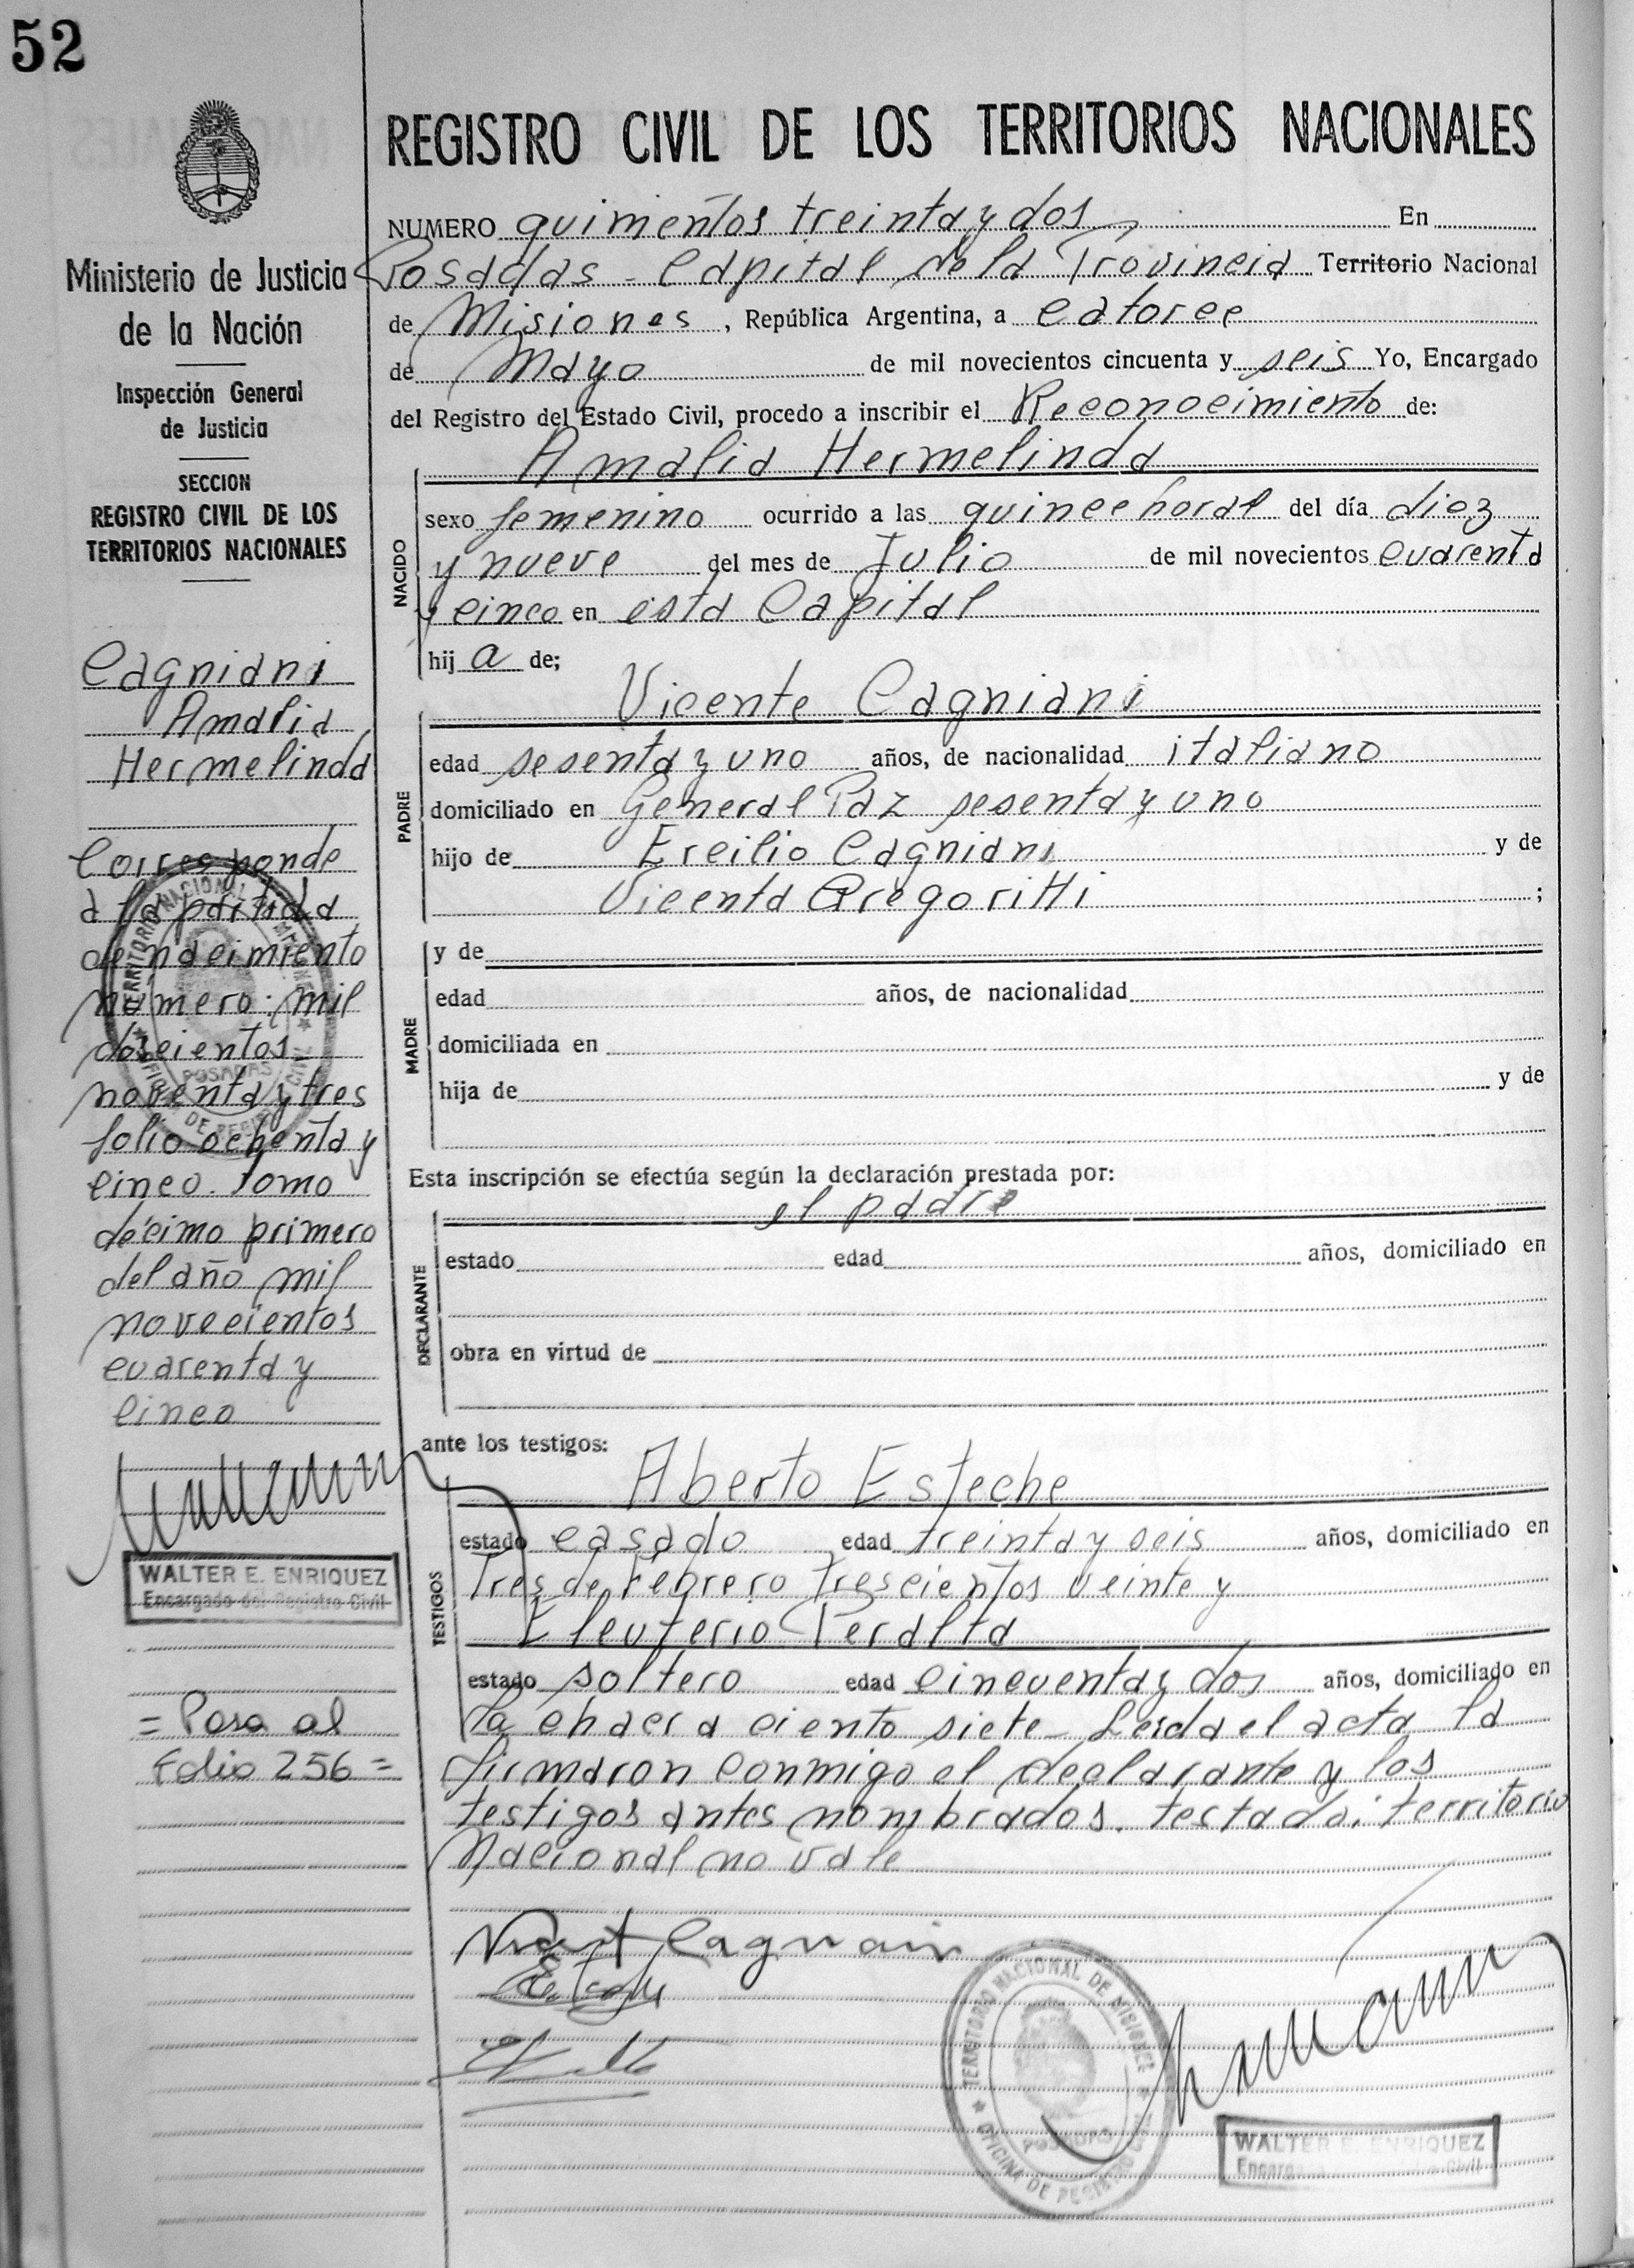 52
REGISTRO CIVIL DE LOS TERRITORIOS NACIONALES
Ministerio de Justicia
de la Nación
Inspección General
de Justicia
SECCION
REGISTRO CIVIL DE LOS
TERRITORIOS NACIONALES
Cagniani
Amalia
Hermelinda
Corresponde
a la partida
de nacimiento
número: mil
doscientos
noventa y tres
folio ochenta y
cinco. Tomo
décimo primero
del año mil
novecientos
cuarenta y
cinco
WALTER E. ENRIQUEZ
Encargado del Registro Civil
= Pasa al
Folio 256 =
NUMERO quinientos treinta y dos En
Posadas - Capital de la Provincia Territorio Nacional
de Misiones, República Argentina, a catorce
de Mayo de mil novecientos cincuenta y seis Yo, Encargado
del Registro del Estado Civil, procedo a inscribir el Reconocimiento de:
Amalia Hermelinda
NACIDO
sexo femenino ocurrido a las quince horas del día diez
y nueve del mes de Julio de mil novecientos cuarenta
y cinco en esta Capital
hij a de;
Vicente Cagniani
PADRE
edad sesenta y uno años, de nacionalidad italiano
domiciliado en General Paz sesenta y uno
hijo de Ercilio Cagniani y de
Vicenta Gregoritti ;
MADRE
y de
edad años, de nacionalidad
domiciliada en
hija de y de
Esta inscripción se efectúa según la declaración prestada por:
el padre
DECLARANTE
estado edad años, domiciliado en
obra en virtud de
ante los testigos:
Aberto Esteche
TESTIGOS
estado casado edad treinta y seis años, domiciliado en
Tres de Febrero trescientos veinte y
Eleuterio Peralta
estado soltero edad cincuenta y dos años, domiciliado en
la chacra ciento siete - Leída el acta la
firmaron conmigo el declarante y los
testigos antes nombrados. testado: territorio
Nacional no vale
TERRITORIO NACIONAL DE MISIONES
POSADAS
OFICINA DE REGISTRO CIVIL
WALTER E. ENRIQUEZ